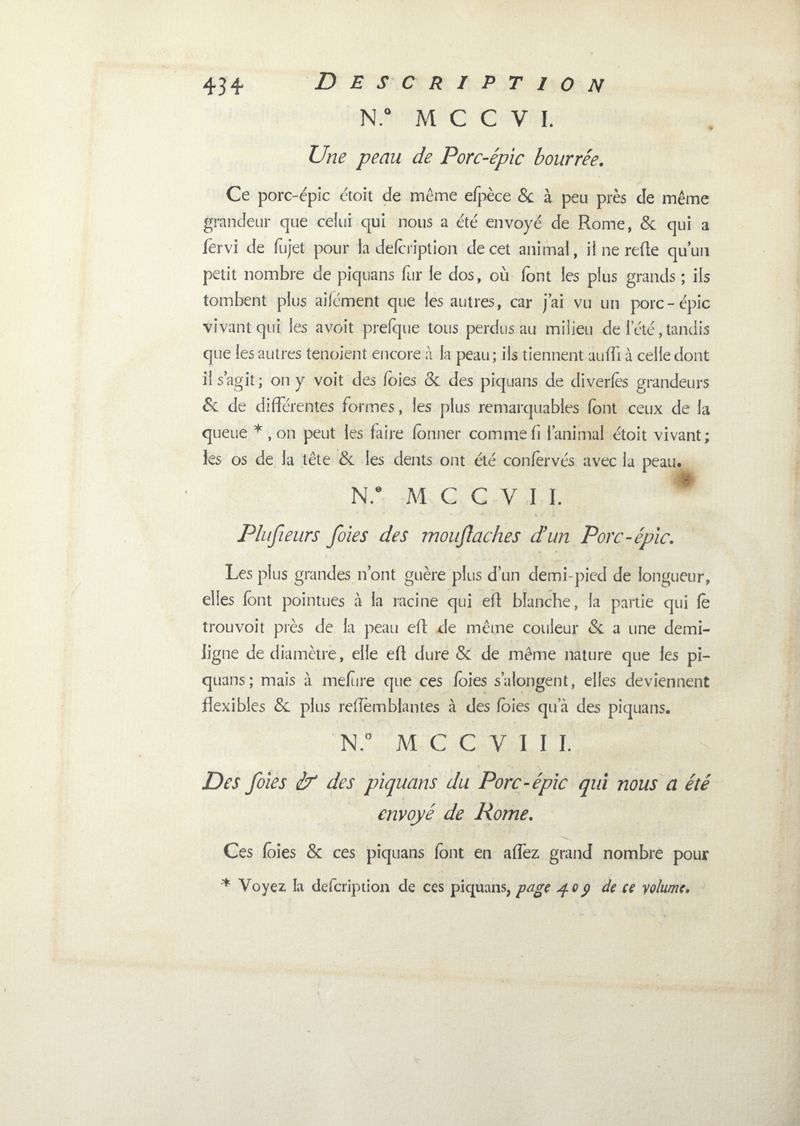 434 DESCRIPTION
N.° MCCVI.
Une peau de Porc-épic bourrée.
Ce porc-épic étoit de même eſpèce & à peu près de même
grandeur que celui qui nous a été envoyé de Rome, & qui a
ſervi de ſujet pour la deſcription de cet animal, il ne reſte qu'un
petit nombre de piquans ſur le dos, où ſont les plus grands; ils
tombent plus aiſément que les autres, car j'ai vu un porc-épic
vivant qui les avoit preſque tous perdus au milieu de l'été, tandis
que les autres tenoient encore à la peau; ils tiennent auſſi à celle dont
il s'agit; on y voit des ſoies & des piquans de diverſes grandeurs
& de différentes formes, les plus remarquables ſont ceux de la
queue *, on peut les faire ſonner comme ſi l'animal étoit vivant;
les os de la tête & les dents ont été conſervés avec la peau.
N.° MCCVII.
Pluſieurs ſoies des mouſtaches d'un Porc-épic.
Les plus grandes n'ont guère plus d'un demi-pied de longueur,
elles ſont pointues à la racine qui eſt blanche, la partie qui ſe
trouvoit près de la peau eſt de même couleur & a une demi-
ligne de diamètre, elle eſt dure & de même nature que les pi-
quans; mais à meſure que ces ſoies s'alongent, elles deviennent
flexibles & plus reſſemblantes à des ſoies qu'à des piquans.
N.° MCCVIII.
Des ſoies & des piquans du Porc-épic qui nous a été
envoyé de Rome.
Ces ſoies & ces piquans ſont en aſſez grand nombre pour
* Voyez la deſcription de ces piquans, page 409 de ce volume.